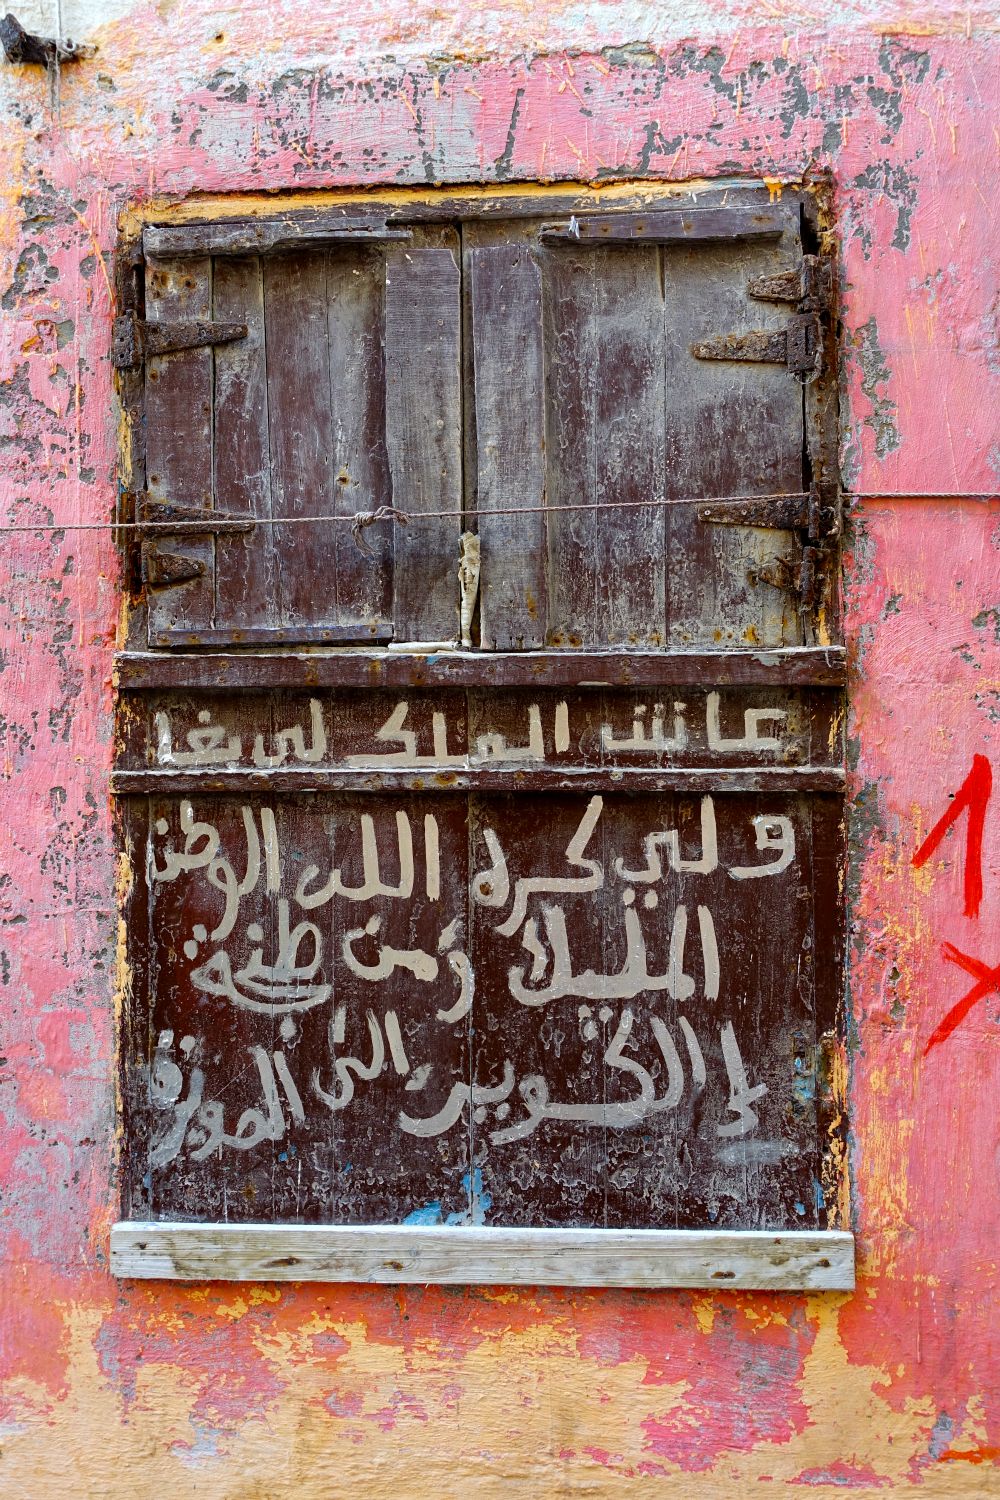 عاش الملك لي بغا
ولي كره الله الوطن
المليك ومن طنجة
لـ الكويرة الى
1
x